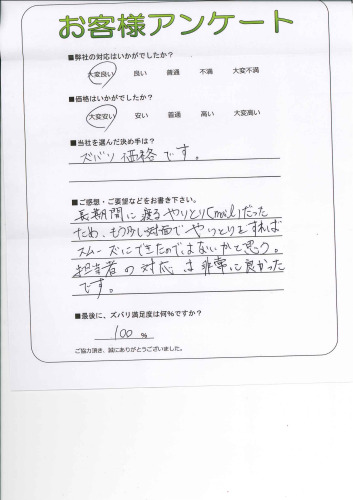 お客様アンケート
■弊社の対応はいかがでしたか？
大変良い 良い 普通 不満 大変不満
■価格はいかがでしたか？
大変安い 安い 普通 高い 大変高い
■当社を選んだ決め手は？
ズバリ価格です。
■ご感想・ご要望などをお書き下さい。
長期間に渡るやりとり(mail)だった
ため、もう少し対面でやりとりをすれば
スムーズにできたのではないかと思う。
担当者の対応は非常に良かった
です。
■最後に、ズバリ満足度は何%ですか？
100 %
ご協力頂き、誠にありがとうございました。